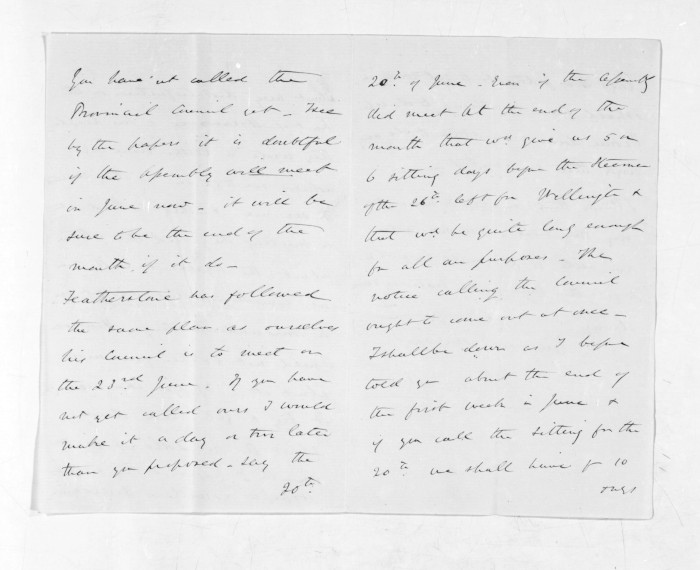 You have nt called the
Provincial Council yet - I see
by the papers it is doubtful
if the Assembly will meet
in June now - it will be
sure to be the end of the
month if it do -
Featherstone has followed
the same plan as ourselves
his Council is to meet on
the 23rd June. If you have
not yet called ours I would
make it a day or two later
than you proposed - say the
20th
20th of June - Even if the Assembly
did meet at the end of the
month that wd give us 5 or
6 sitting days before the Steamer
of the 26th left for Wellington &
that wd be quite long enough
for all our purposes - The
notice calling the Council
ought to come out at once -
I shall be down as I before
told you about the end of
the first week in June &
if you call the sitting for the
20th we shall have 10
days